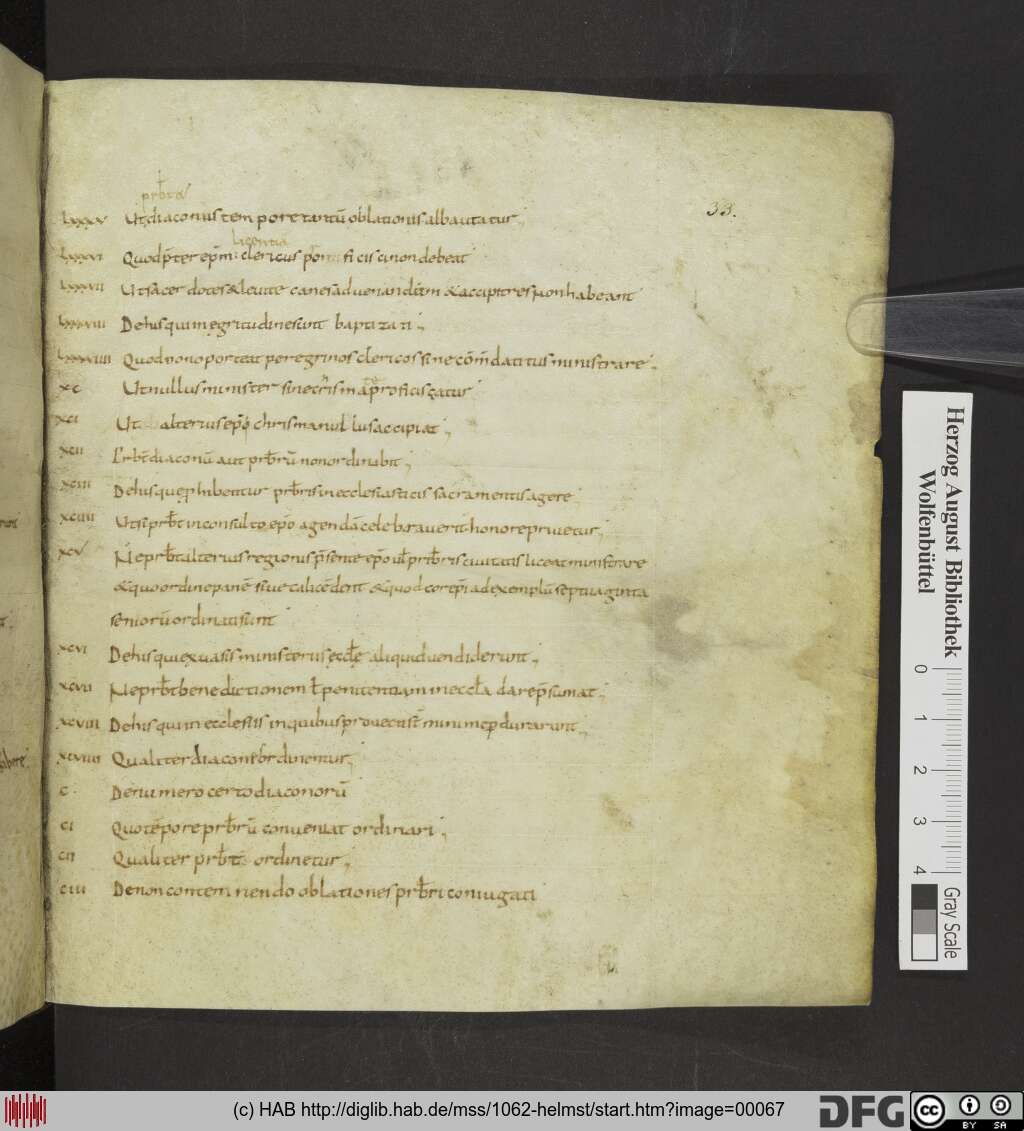 33.
prb̄ta
lxxxv Ut diaconus tempore tantū oblationis alba utatur.,
licentia
lxxxvi Quod p̄ter ep̄m clericus proficisci non debeat
lxxxvii Ut sacerdotes & leuite canes ad uenandū & accipitres non habeant
lxxxviii De his qui in egritudine sunt baptizati.,
lxxxviiii Quod non oporteat peregrinos clericos sine cōmdatitiis ministrare.,
xc Ut nullus minister sine crismate proficiscatur
xci Ut alterius ep̄i chrisma nullus accipiat.,
xcii prb̄t diaconū aut prb̄rū non ordinabit.,
xciii De his que phibentur prb̄ris in ecclesiasticis sacramentis agere
xciiii Ut si prb̄t inconsulto ep̄o agendā celebrauerit honore priuetur.,
xcv Ne prb̄t alterius regionis p̄sente ep̄o ul prb̄ris ciuitatis liceat ministrare
& quo ordine panē siue calicē dent & quod corep̄i ad exemplū septuaginta
seniorū ordinati sunt
xcvi De his qui ex uasis ministeriis eccle aliquid uendiderunt.,
xcvii Ne prb̄t benedictionem ł penitentiam in eccla dare p̄sumat.,
xcviii De his qui in ecclesiis in quibus prouecti st̄ minime pdurarunt.,
xcviiii Qualiter diaconi ordinentur.,
c De numero certo diaconorū
ci Quo tēpore prb̄rū conueniat ordinari.,
cii Qualiter prb̄t ordinetur.,
ciii De non contemnendo oblationes prb̄ri coniugati
Herzog August Bibliothek
Wolfenbüttel
0 1 2 3 4
Gray Scale
(c) HAB http://diglib.hab.de/mss/1062-helmst/start.htm?image=00067
DFG
cc BY SA